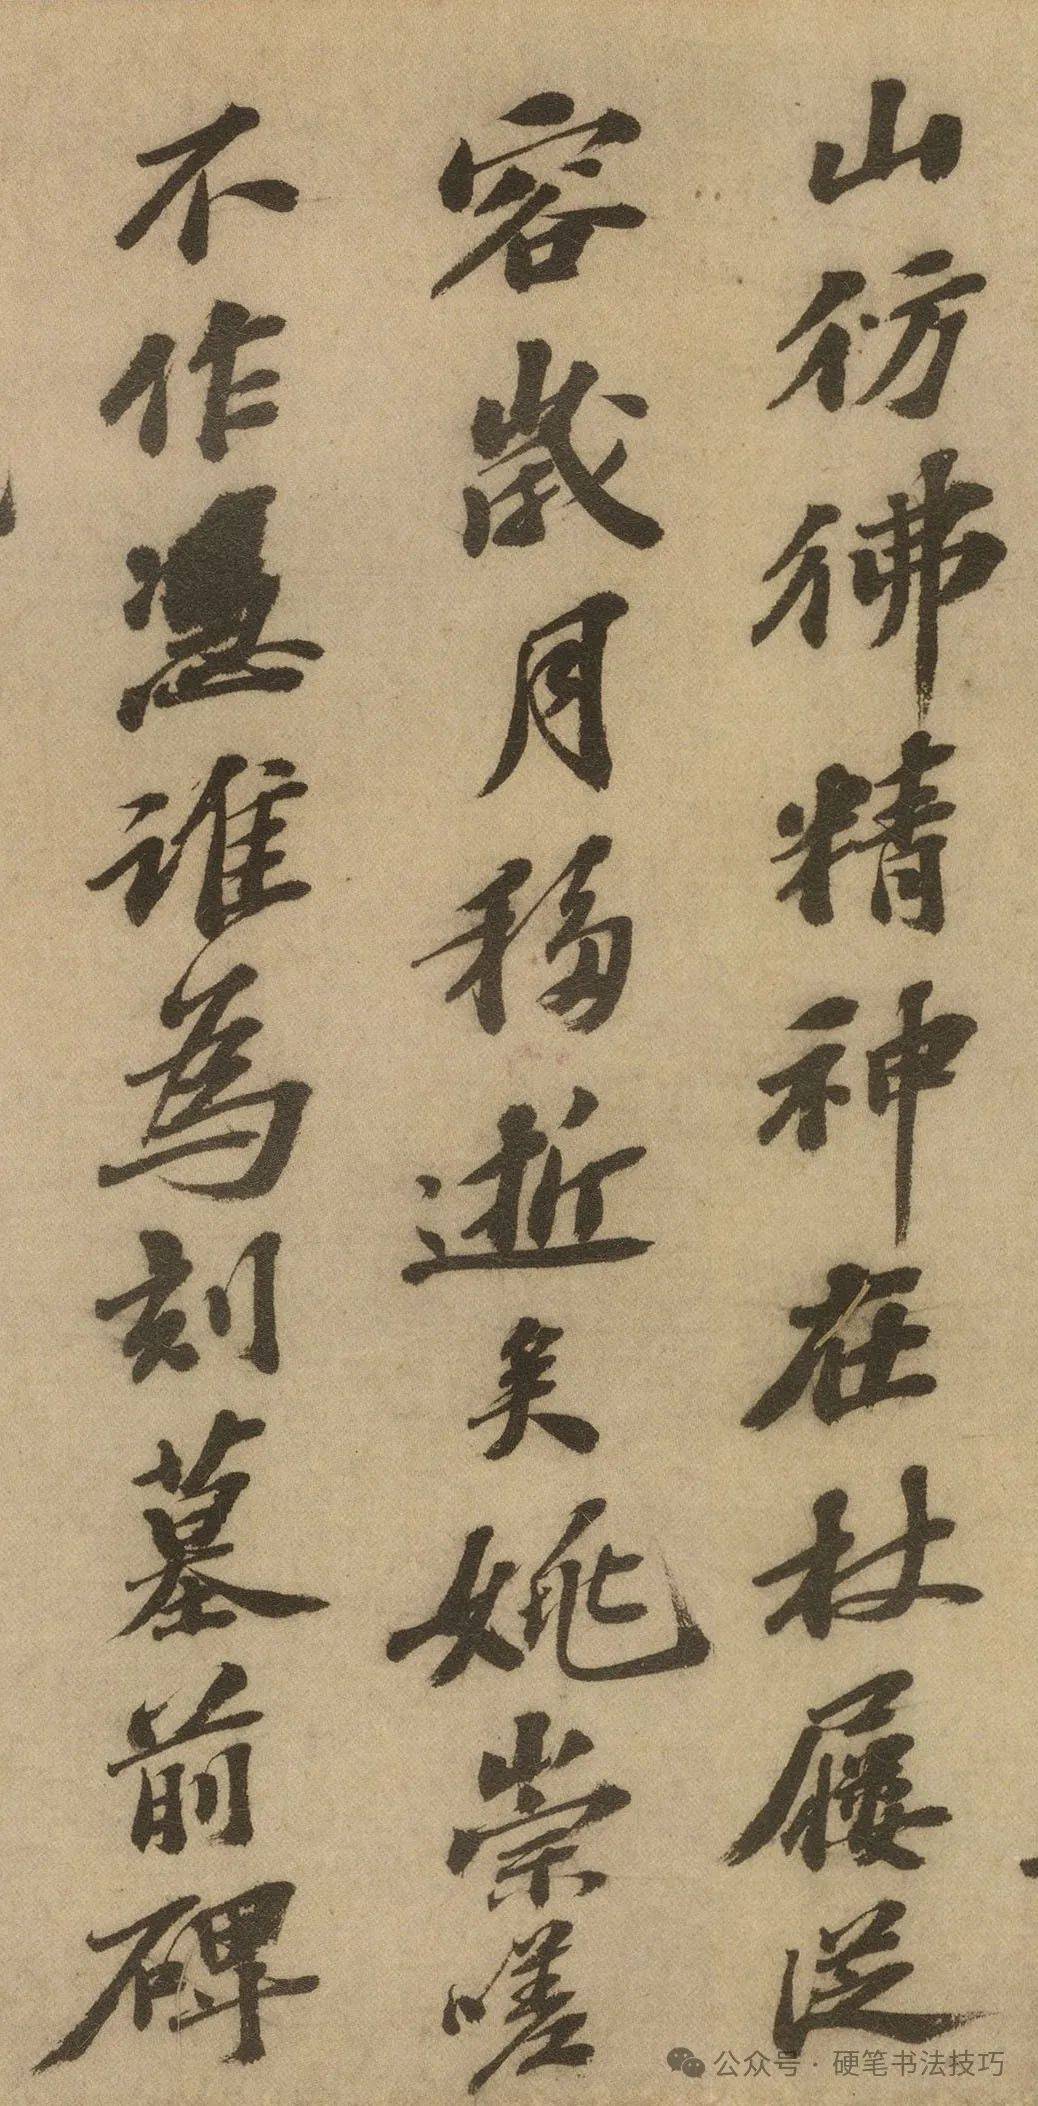 山彷彿精神在杖屨從
容歲月移逝矣姚崇嗟
不作憑誰為刻墓前碑
公众号·硬笔书法技巧